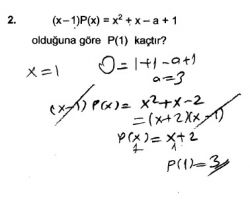 2. (x-1)P(x) = x² + x - a + 1
olduğuna göre P(1) kaçtır?
x=1 0=1+1-a+1
a=3
(x-1) P(x) = x²+x-2
=(x+2)(x-1)
P(x) = x+2
1 1
P(1)=3